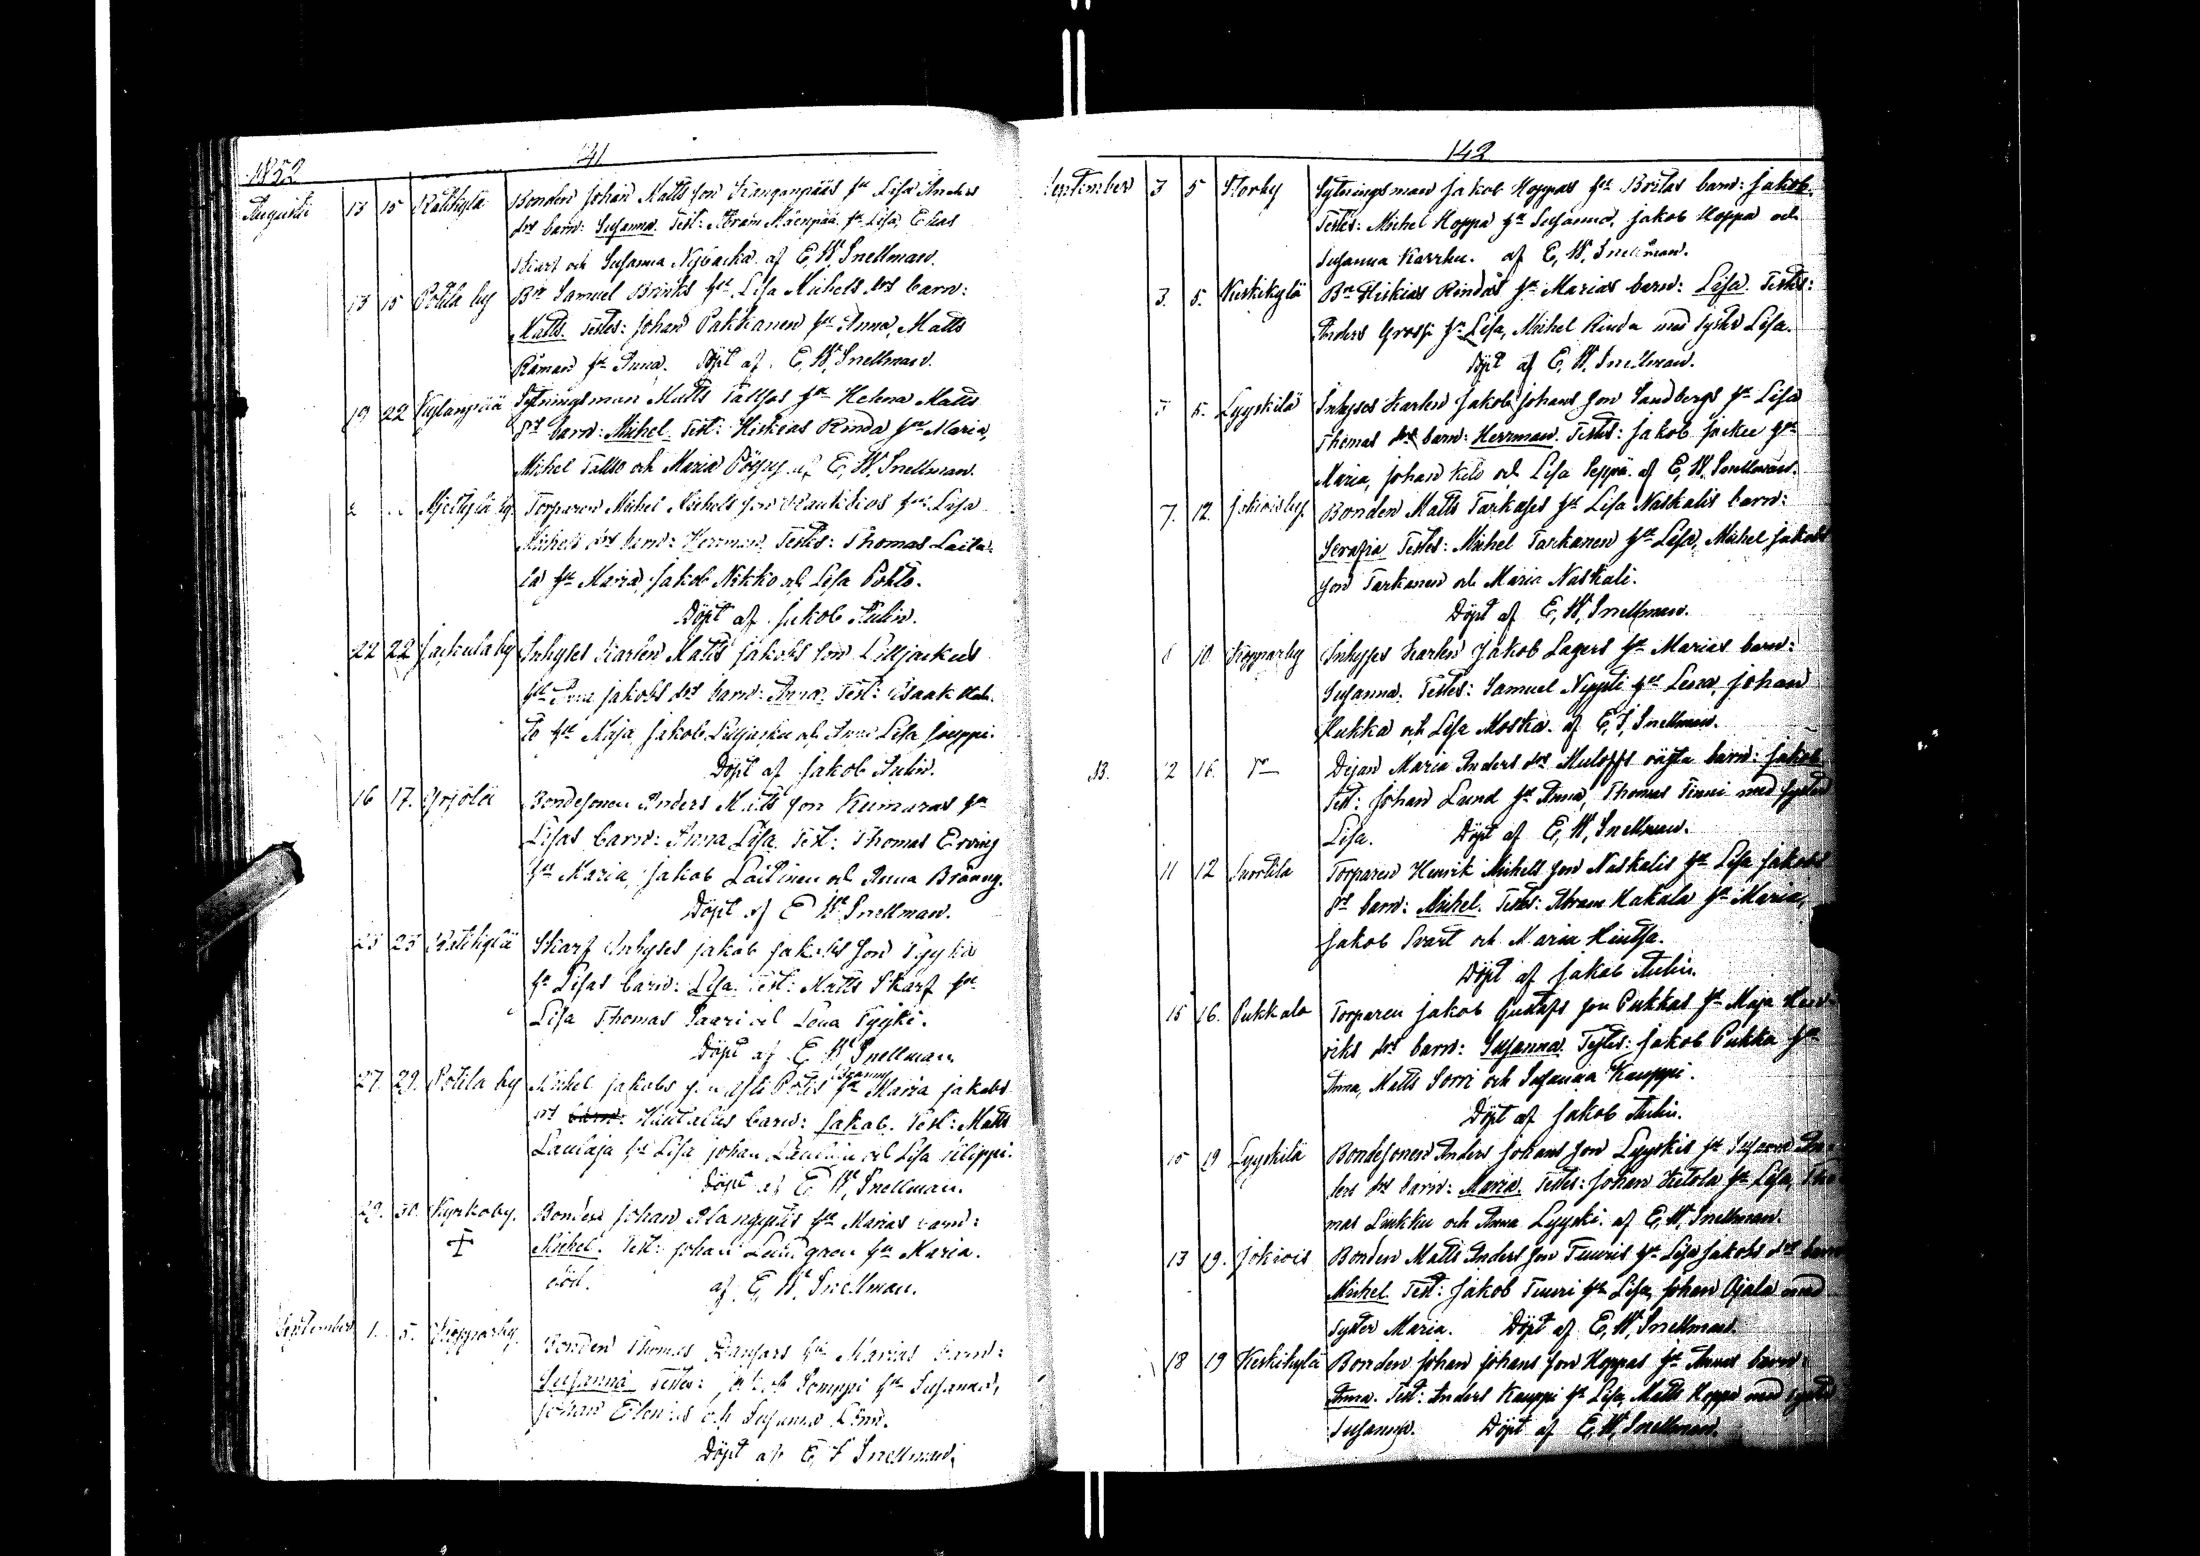 1852
141
Augusti 13 15 Rättkylä Bonden Johan Matts son Kanganpääs hu Lisa Anders
drs barn: Susanna. Test: Abram Mäenpää hu Lisa, Elias
Skarf och Susanna Nybacka. af E, W, Snellman.
13 15 Potila by Bn Samuel Brinks hu Lisa Michels drs barn:
Matts. Testes: Johan Pakkanen hu Anna, Matts
Råman hu Anna. Döpt af E, W, Snellman.
19 22 Kylänpää Sytningsman Matts Tallgos hu Helena Matts
drs barn: Michel. Test: Hiskias Rinda hu Maria,
Michel Tallo och Maria Pöyry. af E, W, Snellman.
Torparen Michel Michels son hu Lisa
Michels drs barn: Herrman. Testes: Thomas Laita-
la hu Maria, Jakob Nikko och Lisa Pohto.
Döpt af Jakob Aulin.
22 22 Jackula by Inhyses Karlen Matts Jakobs son Lilljackus
hu Anna Jakobs drs barn: Anna. Test: Isaak
hu Maja Jakob Lilljacku och Anna Lisa Jouppi.
Döpt af Jakob Aulin.
16 17. Yrjölä Bondesonen Anders Matts son Kumaras hu
Lisas barn: Anna Lisa. Test: Thomas Erving
hu Maria, Jakob Laitinen och Anna Brännj.
Döpt af E W, Snellman.
23 23 Rättikylä Skarf Inhyses Jakob Jakobs son Pyykä
hu Lisas barn: Lisa. Test: Matts Skarf hu
Lisa Thomas Saari och Lena Tyyki.
Döpt af E W, Snellman.
27. 29. Potila by Michel Jakobs son Potis hu Maria Jakobs
drs barn: barn: Jakob. Test: Matts
Laulaja hu Lisa Johan och Lisa Filippi.
Döpt af E W, Snellman.
29. 30. Kyrkoby. Bonden Johan hu Marias barn:
+ Michel. Test: Johan Lundgren hu Maria.
död. af E, W, Snellman.
September 1. 5. Kopparby. Bonden Thomas hu Marias barn:
Susanna Testes: Jakob Somppi hu Susanna,
Johan Elenius och Susanna Lönn.
Döpt af E, F Snellman.
142
September 3 5 Storby Sytningsman Jakob Hoppas hu Britas barn: Jakob.
Testes: Michel Hoppa hu Susanna, Jakob Hoppa och
Susanna Karrhu. af E, W, Snellman.
3. 5. Keskikylä Bn Hiskias Rindas hu Marias barn: Lisa. Testes:
Anders Grossi hu Lisa, Michel Rinda med syster Lisa.
Döpt af E, W, Snellman.
5. Lyyskilä Inhyses Karlen Jakob Johans son Sandbergs hu Lisa
Thomas drs barn: Herrman. Testes: Jakob Jacku hu
Maria, Johan och Lisa Seppä. af E, W, Snellman.
7. 12. Jokioisby. Bonden Matts Tarkases hu Lisa Naskalis barn:
Serafia Testes: Michel Tarkanen hu Lisa, Michel Jakobs
son Tarkanen och Maria Naskali.
Döpt af E, W, Snellman.
10. Kopparby Inhyses Karlen Jakob Lagers hu Marias barn:
Susanna. Testes: Samuel Nyysti hu Lena, Johan
Hukka och Lisa Moska. af E, F, Snellman.
NB. 12 16. dr Dejan Maria Anders drs Mulopps oägta barn: Jakob
Test: Johan Lund hu Anna, Thomas Finni med syster
Lisa. Döpt af E, W, Snellman.
11 12 Suortila Torparen Henrik Michels son Naskalis hu Lisa Jakobs
drs barn: Michel. Testes: Abram Hakala hu Maria,
Jakob Svart och Maria Hintsa.
Döpt af Jakob Aulin.
15 16. Pukkala Torparen Jakob Gustafs son Pukkas hu Maja Hen-
riks drs barn: Susanna. Testes: Jakob Pukka hu
Anna, Matts Sorri och Susanna Kauppi.
Döpt af Jakob Aulin.
15 19 Lyyskilä Bondesonen Anders Johans son Lyyskis hu Susanna An-
ders drs barn: Maria. Testes: Johan Ketola hu Lisa, Tho-
mas Linkku och Anna Lyyski. af E, W, Snellman.
13 19. Jokiois Bonden Matts Anders son Tuuris hu Lisa Jakobs drs barn
Michel. Test: Jakob Tuuri hu Lisa, Johan Ojala med
syster Maria. Döpt af E, W, Snellman.
18 19 Keskikylä Bonden Johan Johans son Hoppas hu Annas barn:
Anna. Test: Anders Kauppi hu Lisa, Matts Hoppa med syster
Susanna. Döpt af E, W, Snellman.